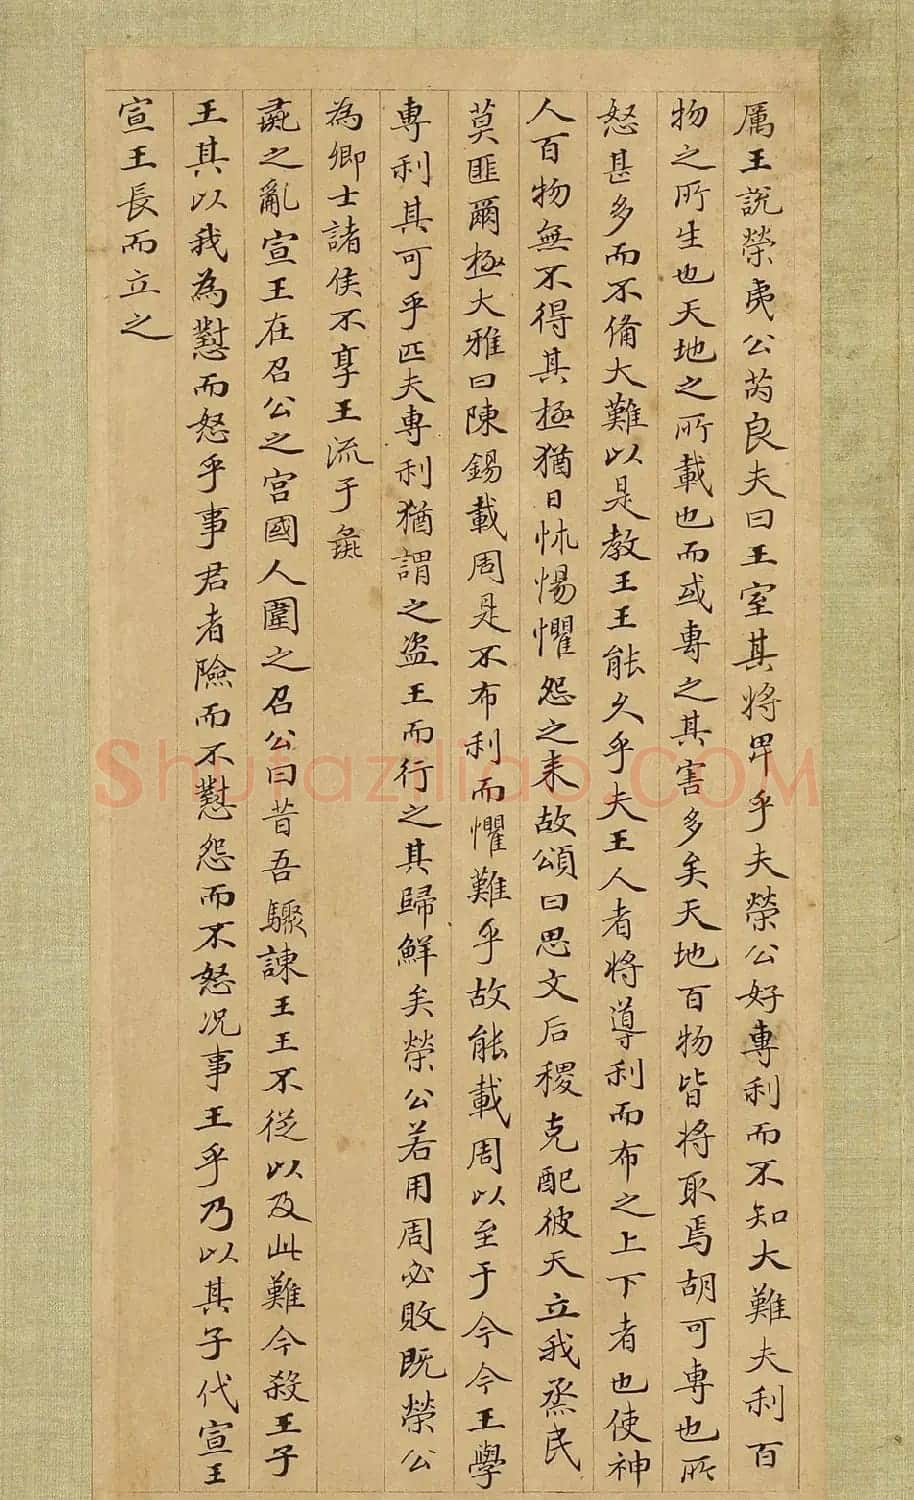 厲王說榮夷公芮良夫曰王室其將卑乎夫榮公好專利而不知大難夫利百
物之所生也天地之所載也而或專之其害多矣天地百物皆將取焉胡可專也所
怒甚多而不備大難以是教王王能久乎夫王人者將導利而布之上下者也使神
人百物無不得其極猶日怵惕懼怨之来故頌曰思文后稷克配彼天立我烝民
莫匪爾極大雅曰陳錫載周是不布利而懼難乎故能載周以至于今今王學
專利其可乎匹夫專利猶謂之盜王而行之其歸鮮矣榮公若用周必敗既榮公
為卿士諸侯不享王流于彘
彘之亂宣王在召公之宮國人圍之召公曰昔吾驟諫王王不從以及此難今殺王子
王其以我為懟而怒乎事君者險而不懟怨而不怒況事王乎乃以其子代宣王
宣王長而立之
Shufaziliao.COM